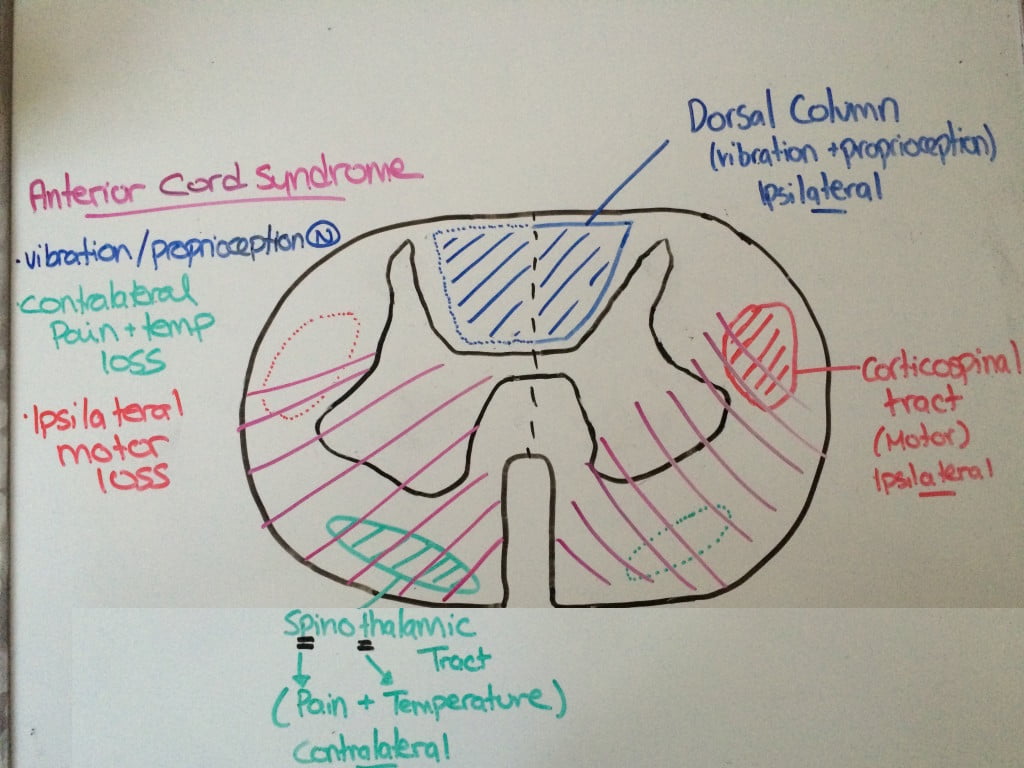 Dorsal Column
(vibration + proprioception)
Ipsilateral
Anterior Cord Syndrome
• vibration/proprioception Ⓝ
• contralateral
Pain + temp
loss
• Ipsilateral
motor
loss
Corticospinal
tract
(Motor)
Ipsilateral
Spinothalamic
Tract
(Pain + Temperature)
Contralateral